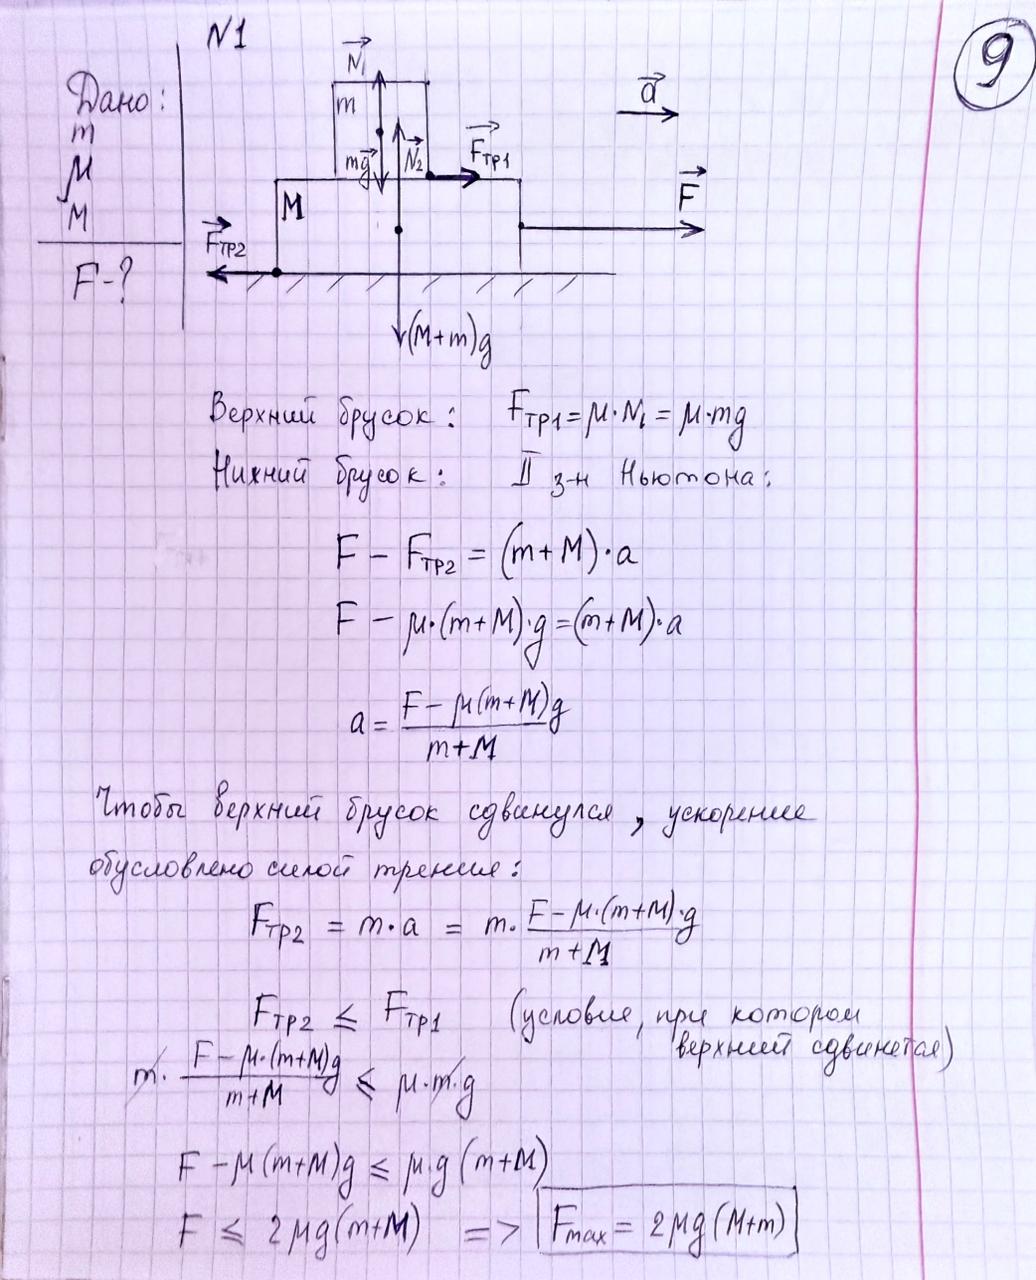 N1
9
Дано:
m
μ
M
F-?
N⃗₁
m
mg⃗
N⃗₂
F⃗тр1
a⃗
M
F⃗
F⃗тр2
(M+m)g
Верхний брусок: Fтр1 = μ·N₁ = μ·mg
Нижний брусок: II з-н Ньютона:
F − Fтр2 = (m+M)·a
F − μ·(m+M)·g = (m+M)·a
a = (F − μ(m+M)g)/(m+M)
Чтобы верхний брусок сдвинулся, ускорение
обусловлено силой трения:
Fтр2 = m·a = m·(F−μ·(m+M)·g)/(m+M)
Fтр2 ⩽ Fтр1 (условие, при котором
верхний сдвинется)
m·(F−μ·(m+M)g)/(m+M) ⩽ μ·m·g
F − μ(m+M)g ⩽ μ·g(m+M)
F ⩽ 2μg(m+M) => Fmax = 2μg(M+m)